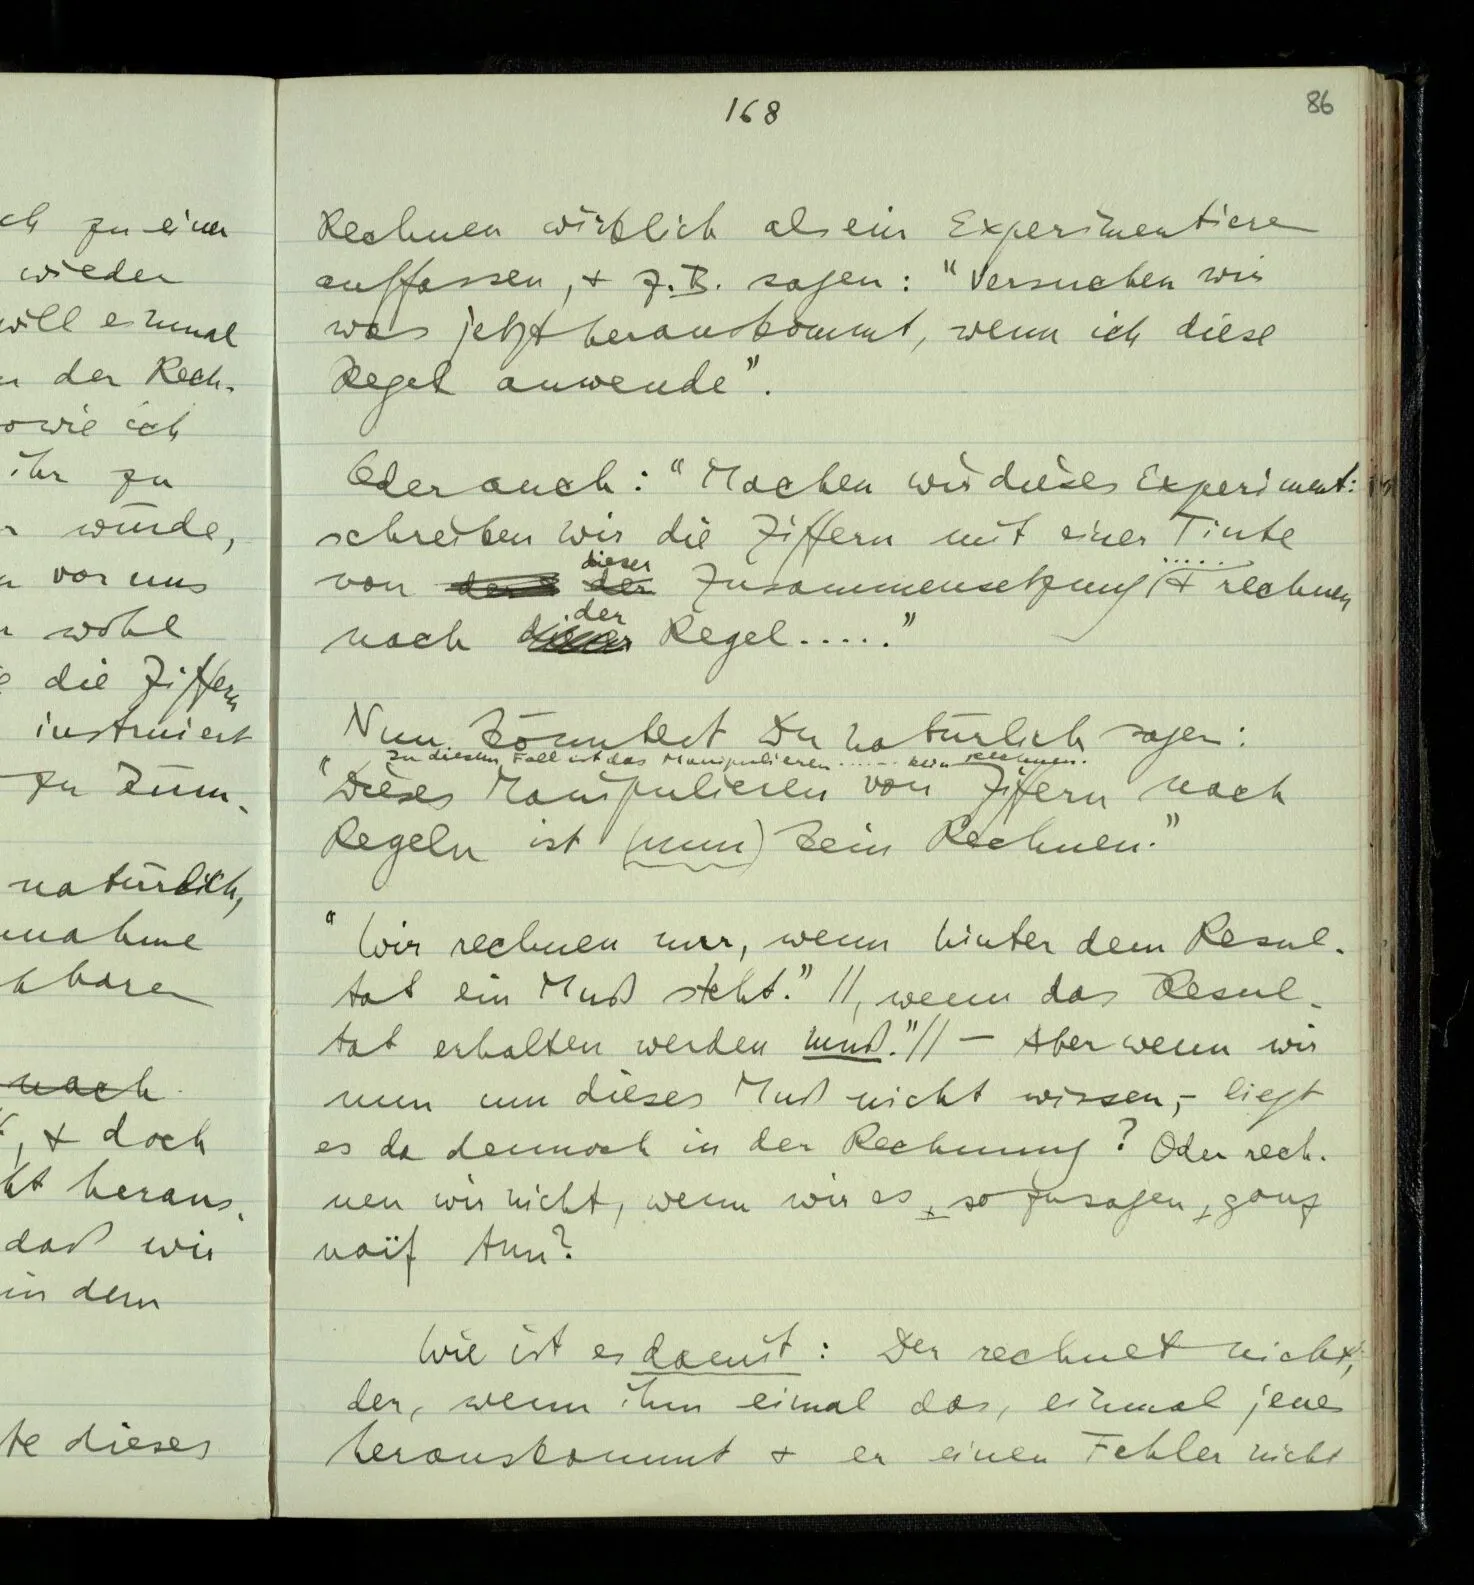 168
86
ch zu einer
wieder
will einmal
der Rech-
sowie ich
ihr zu
würde,
vor uns
wohl
die Ziffern
instruiert
zu küm-
natürlich,
nnahme
kbaren
nach
, & doch
ht heraus,
daß wir
in dem
te dieses
Rechnen wirklich als ein Experimentieren
auffassen, & z.B. sagen: "Versuchen wir
was jetzt herauskommt, wenn ich diese
Regel anwende".
Oder auch: "Machen wir dieses Experiment:
schreiben wir die Ziffern mit einer Tinte
dieser .....
von der Zusammensetzung & rechnen
der
nach dieser Regel....."
Nun könntest Du natürlich sagen:
In diesem Fall ist das Manipulieren ...... kein Rechnen.
"Dieses Manipulieren von Ziffern nach
Regeln ist (nun) kein Rechnen."
"Wir rechnen nur, wenn hinter dem Resul-
tat ein Muß steht." //, wenn das Resul-
tat erhalten werden muß."// — Aber wenn wir
nun um dieses Muß nicht wissen, – liegt
es da dennoch in der Rechnung? Oder rech-
nen wir nicht, wenn wir es, sozusagen, ganz
naïf tun?
Wie ist es damit: Der rechnet nicht,
der, wenn ihm eimal das, einmal jenes
herauskommt & er einen Fehler nicht